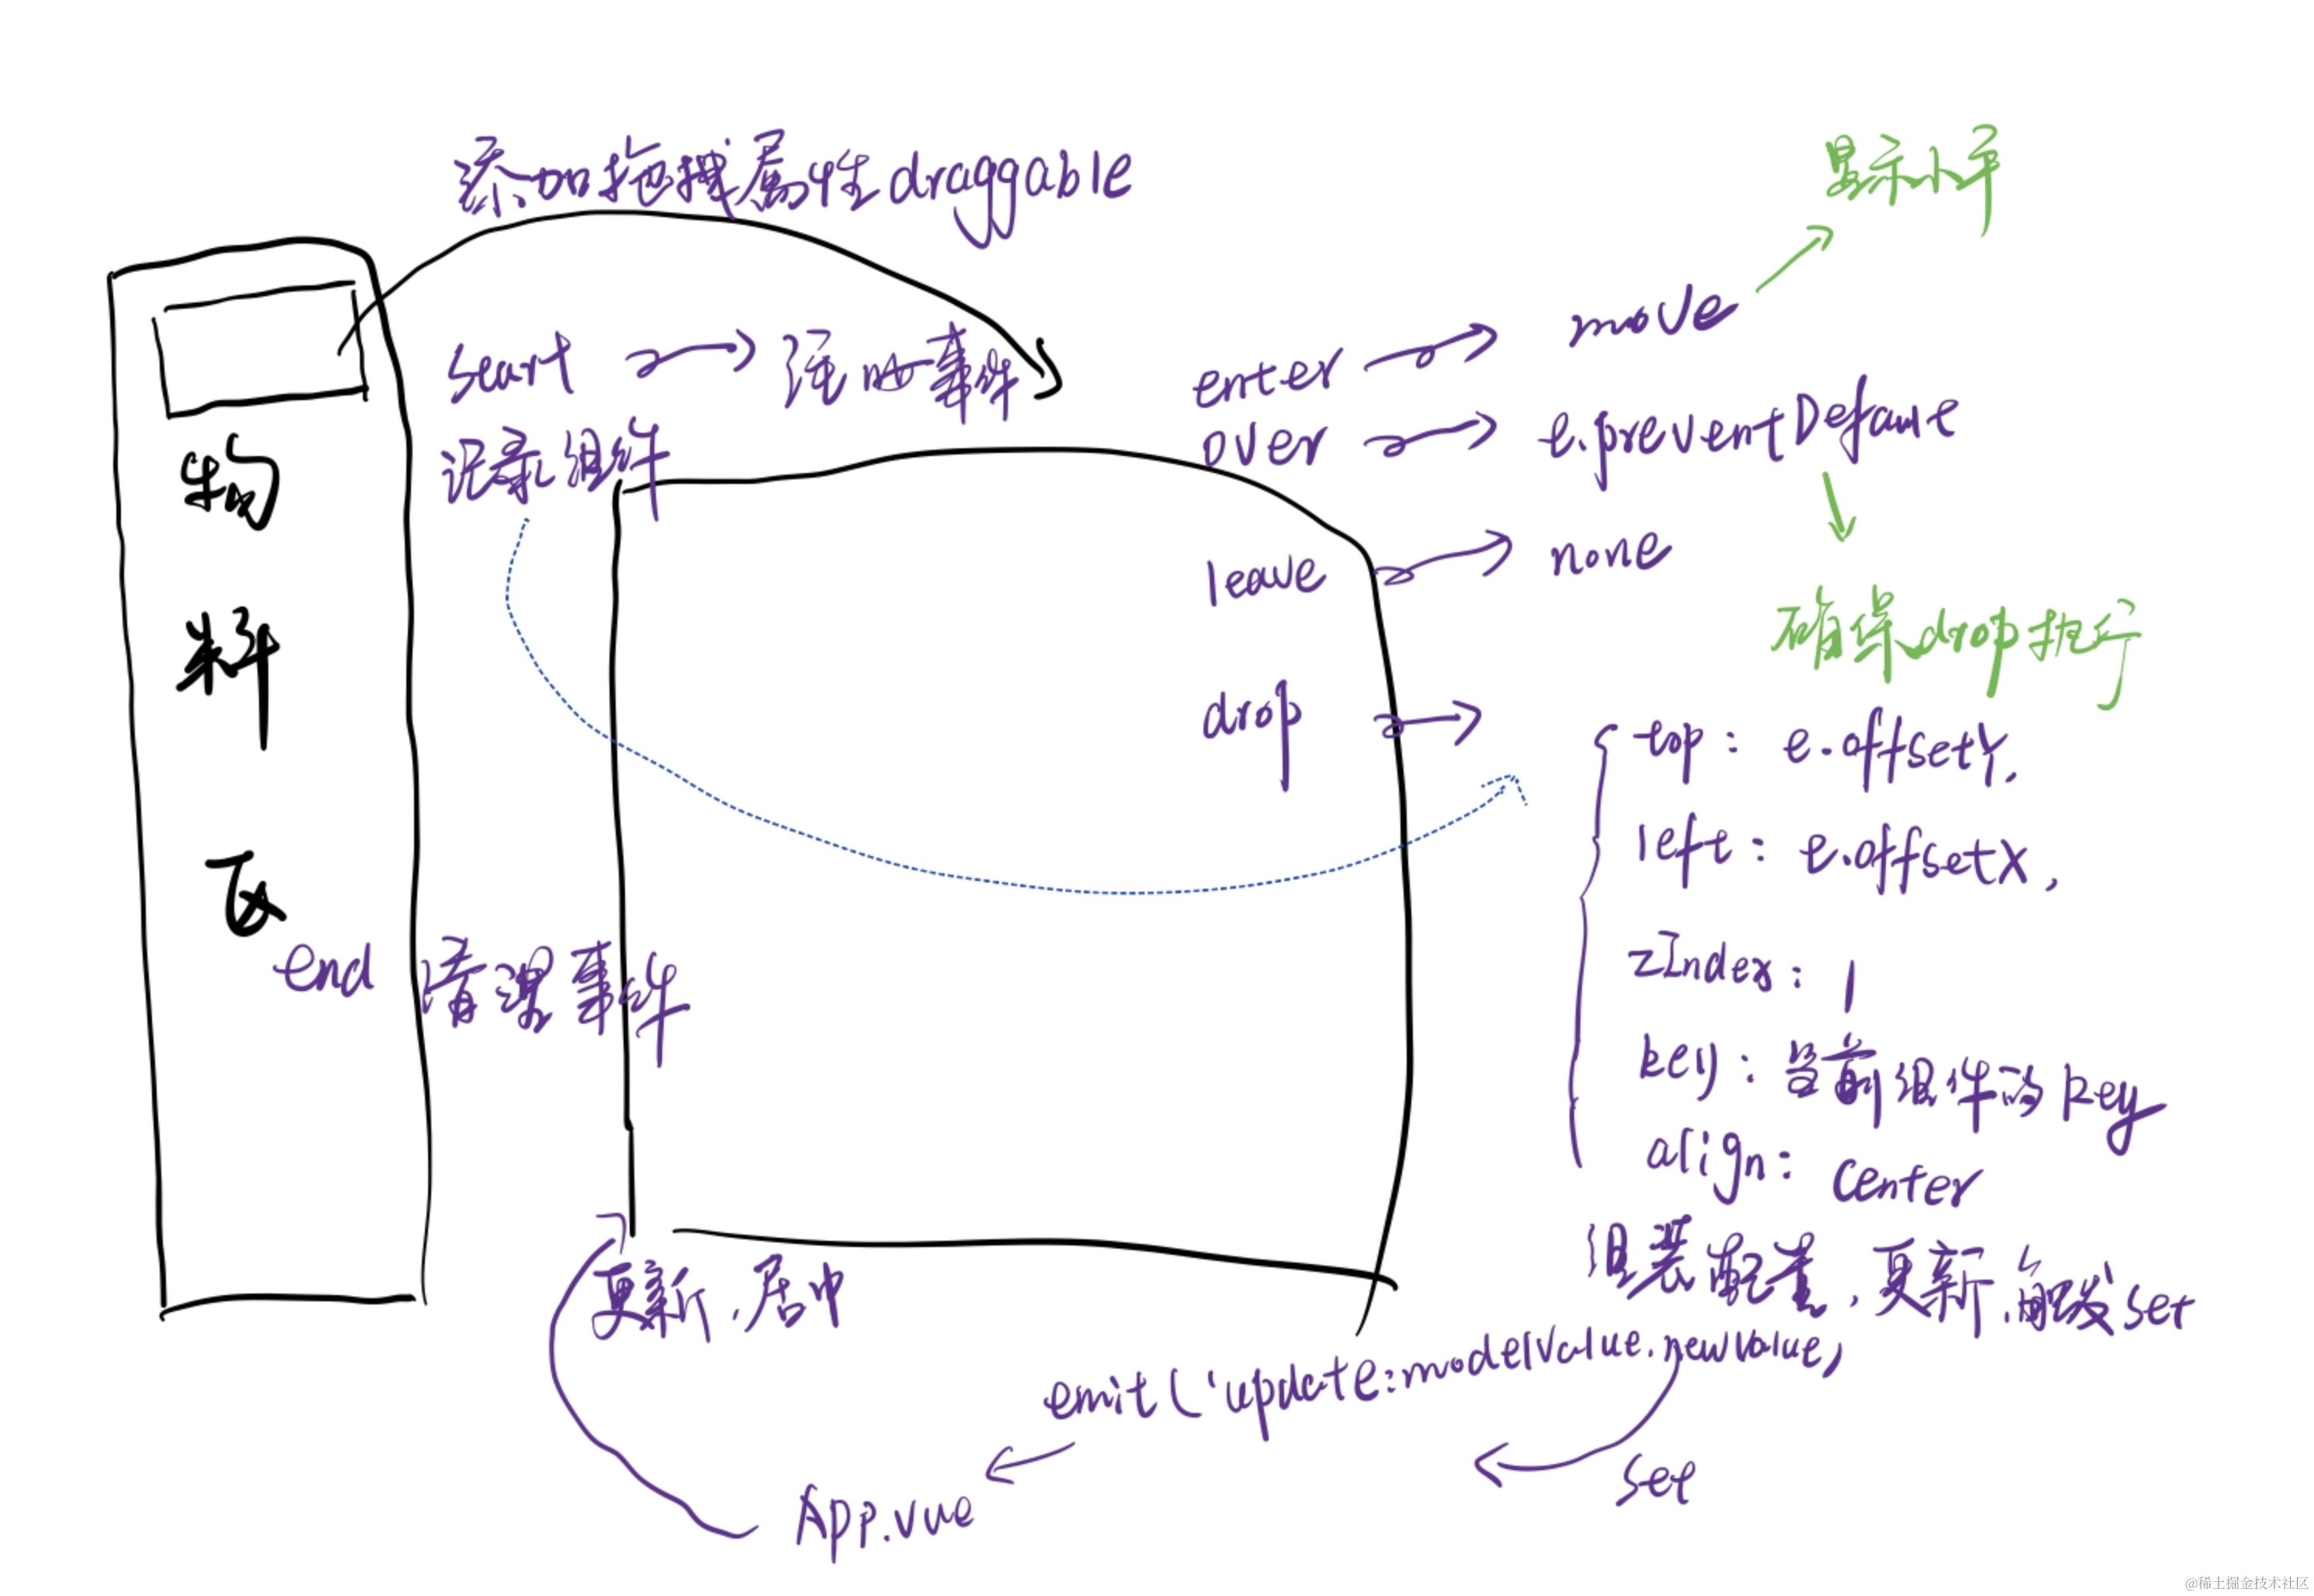 添加拖拽属性draggable
显示小手
start 注册事件
记录组件
enter move
over e.preventDefault
leave none
确保drop执行
drop
物料区
end 清理事件
top: e.offsetY,
left: e.offsetX,
zIndex: 1
key: 当前组件的key
align: center
组装配置,更新,触发set
更新,居中
emit('update:modelValue.newValue)
set
App.vue
@稀土掘金技术社区